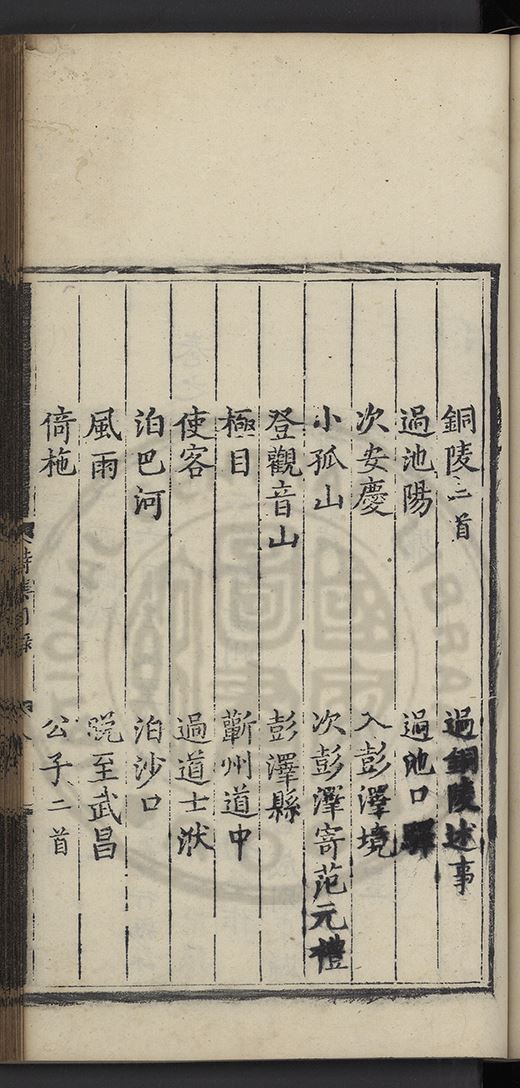 銅陵三首 過銅陵述事
過池陽 過池口驛
次安慶 入彭澤境
小孤山 次彭澤寄范元禮
登觀音山 彭澤縣
極目 蘄州道中
使客 過道士洑
泊巴河 泊沙口
風雨 晚至武昌
倚柂 公子二首